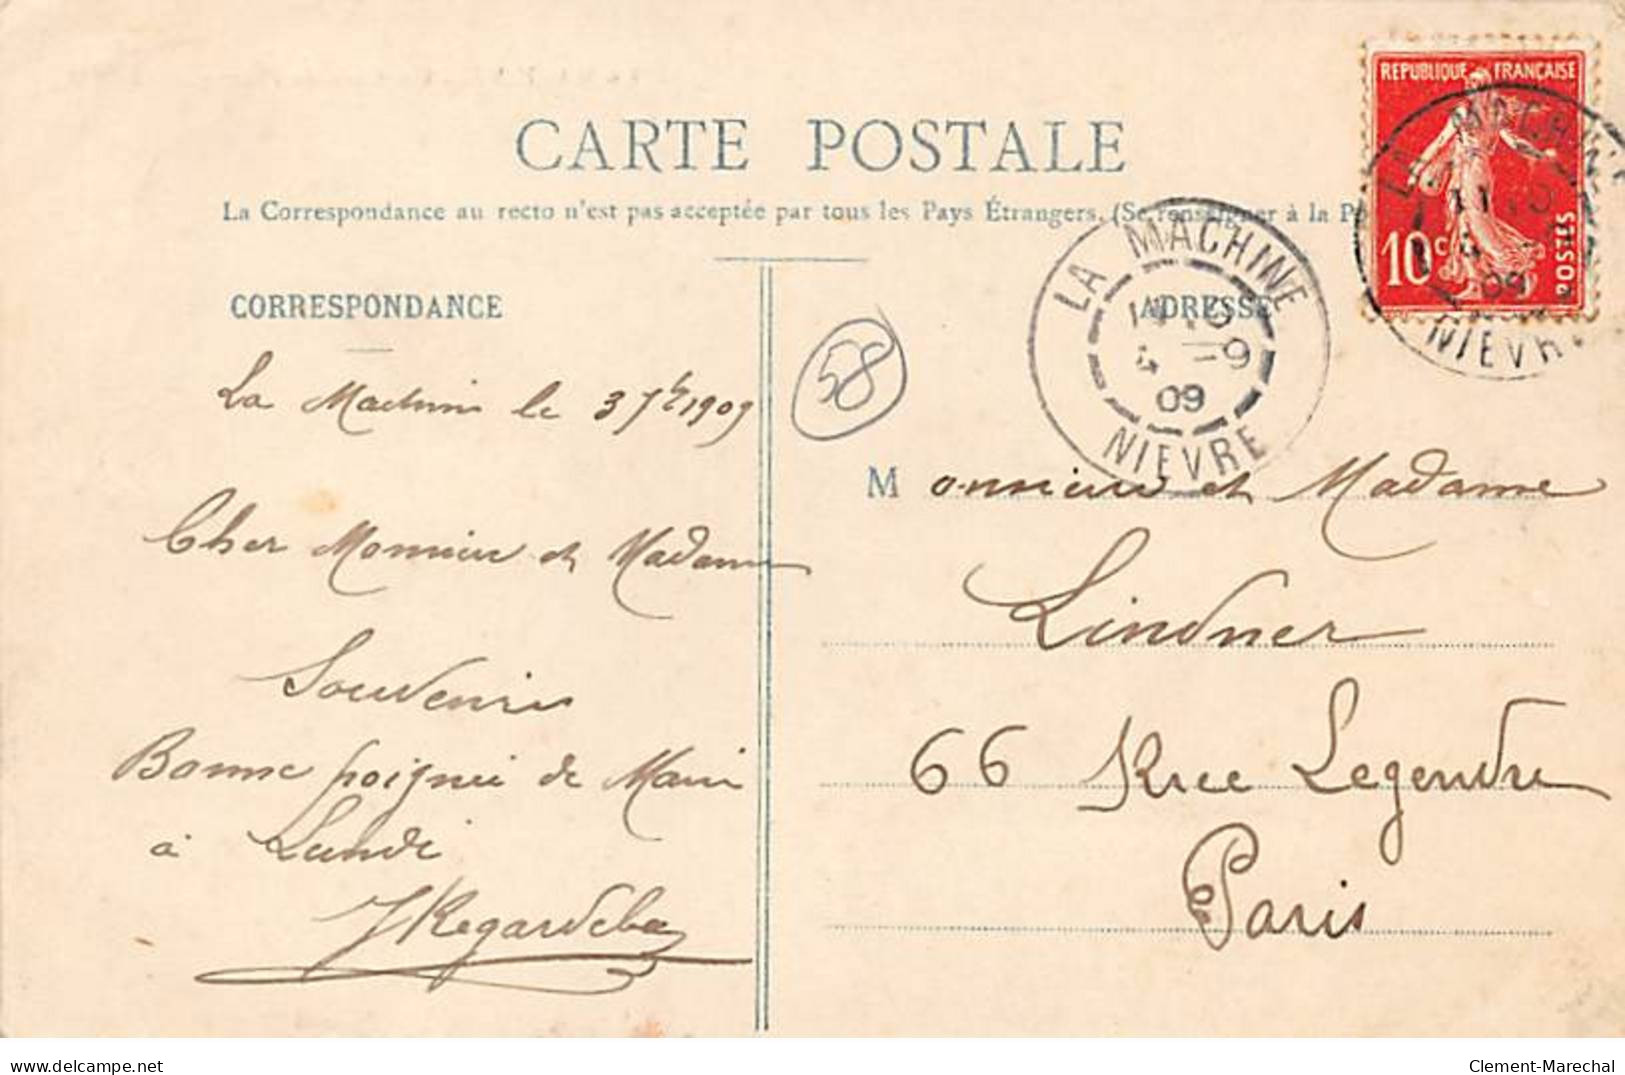 CARTE POSTALE
La Correspondance au recto n'est pas acceptée par tous les Pays Étrangers. (Se renseigner à la
CORRESPONDANCE
ADRESSE
REPUBLIQUE FRANÇAISE
10c POSTES
LA MACHINE
09
NIEVRE
LA MACHINE
4 -9
09
NIEVRE
58
La Machine le 3 7bre 1909
Cher Monsieur et Madame
Souvenirs
Bonne poignée de Main
à Lundi
Monsieur et Madame
Lindner
66 Rue Legendre
Paris
www.delcampe.net
Clement-Marechal